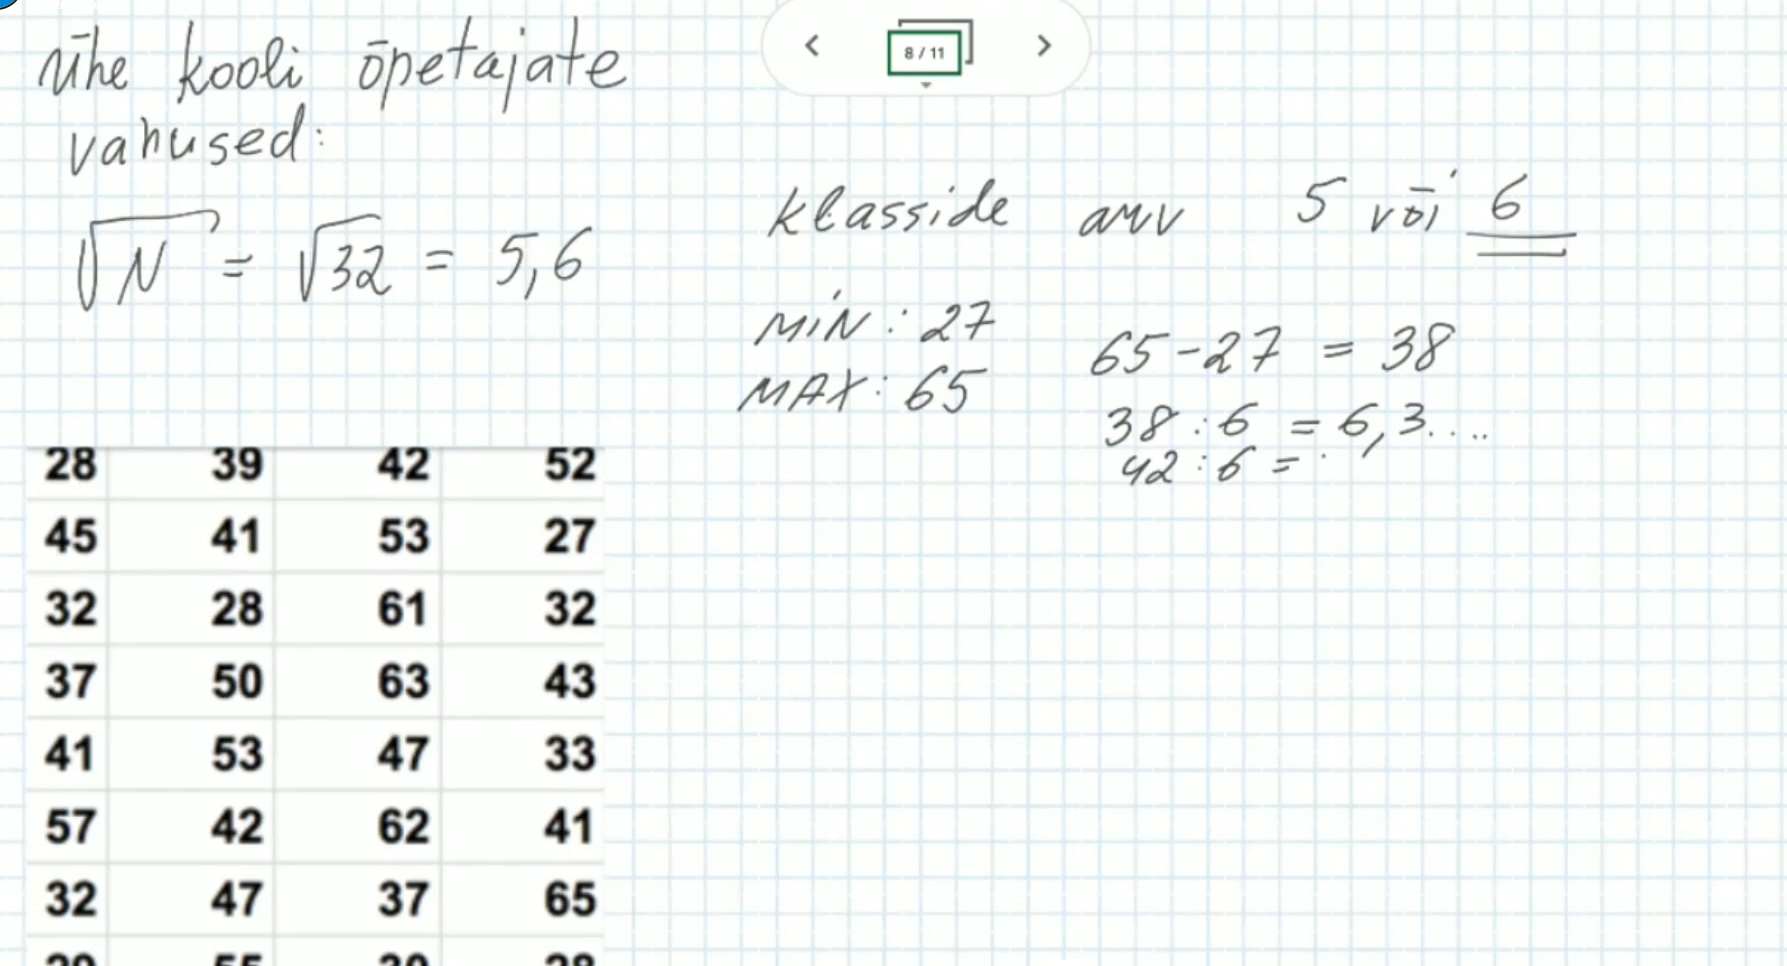 8 / 11
ühe kooli õpetajate
vanused:
√N = √32 = 5,6
klasside arv 5 või 6
MIN: 27
MAX: 65
65-27 = 38
38 : 6 = 6,3....
42 : 6 =
28 39 42 52
45 41 53 27
32 28 61 32
37 50 63 43
41 53 47 33
57 42 62 41
32 47 37 65